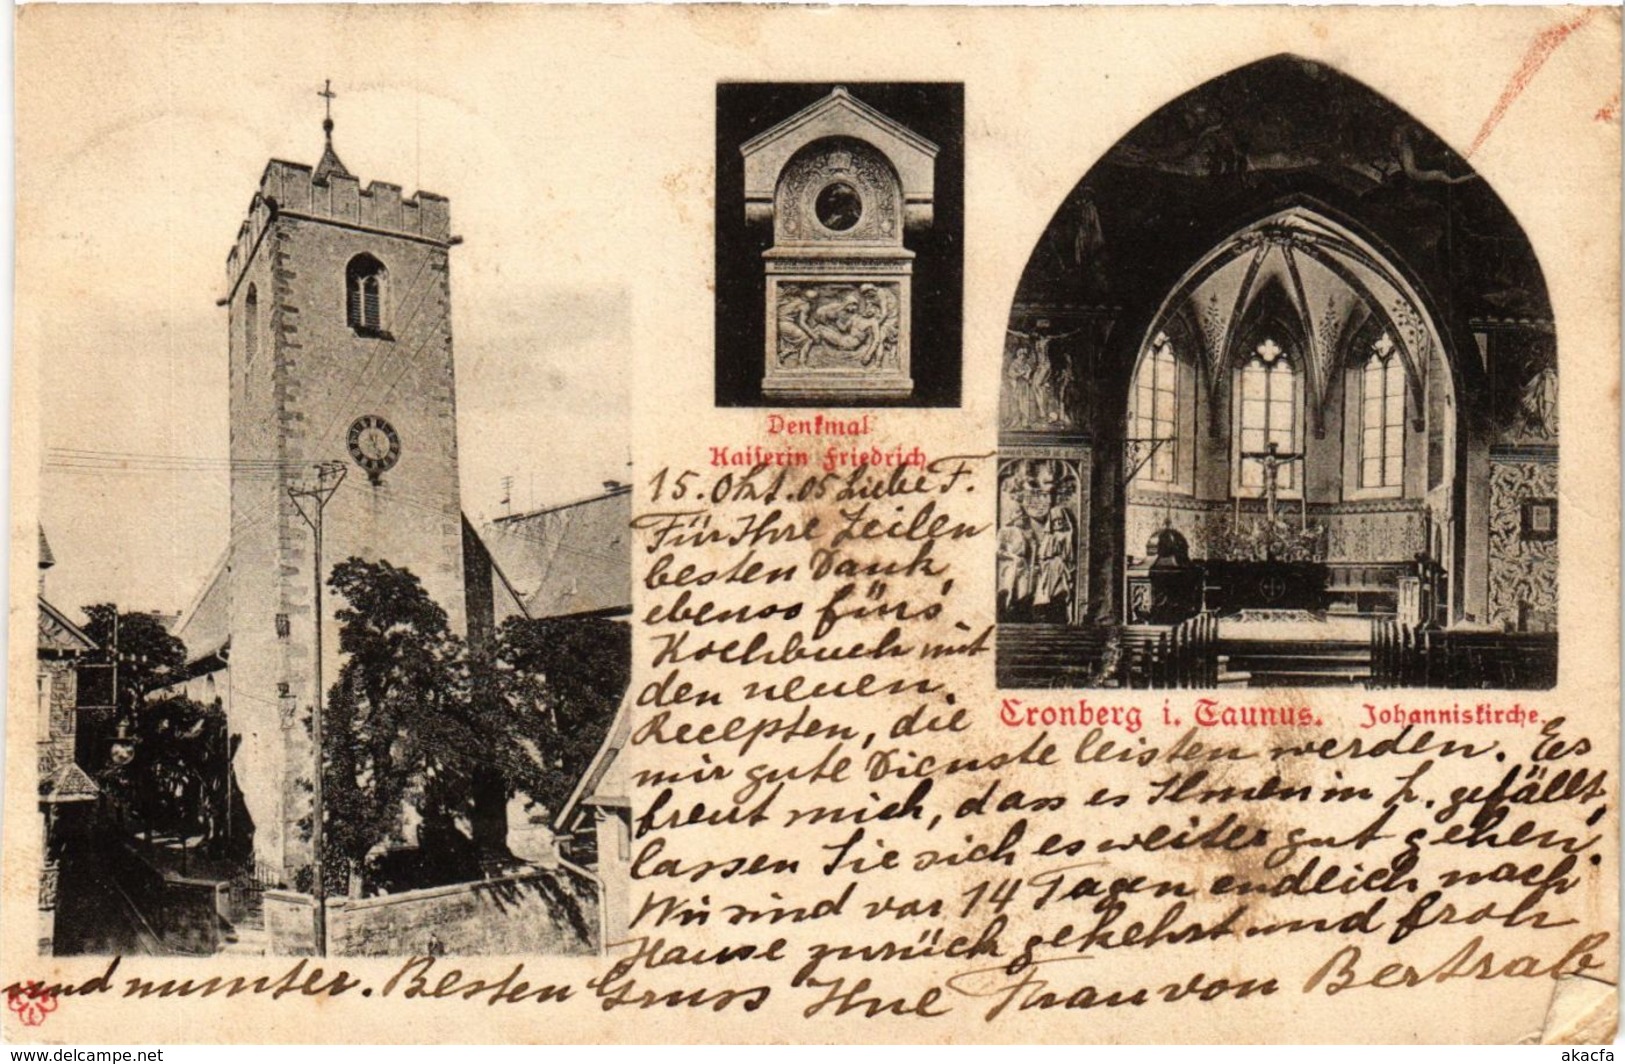 Denkmal
Kaiserin Friedrich
Cronberg i. Taunus.
Johanniskirche.
15. Okt. 05 Liebe F.
Für Ihre Zeilen
besten Dank,
ebenso fürs
Kochbuch mit
den neuen
Recepten, die
mir gute Dienste leisten werden. Es
freut mich, dass es Ihnen in L. gefällt,
lassen Sie sich es weiter gut gehen.
Wir sind vor 14 Tagen endlich nach
Hause zurück gekehrt und froh
und munter. Besten Gruss Ihre Frau von Bertrab
www.delcampe.net
akacfa